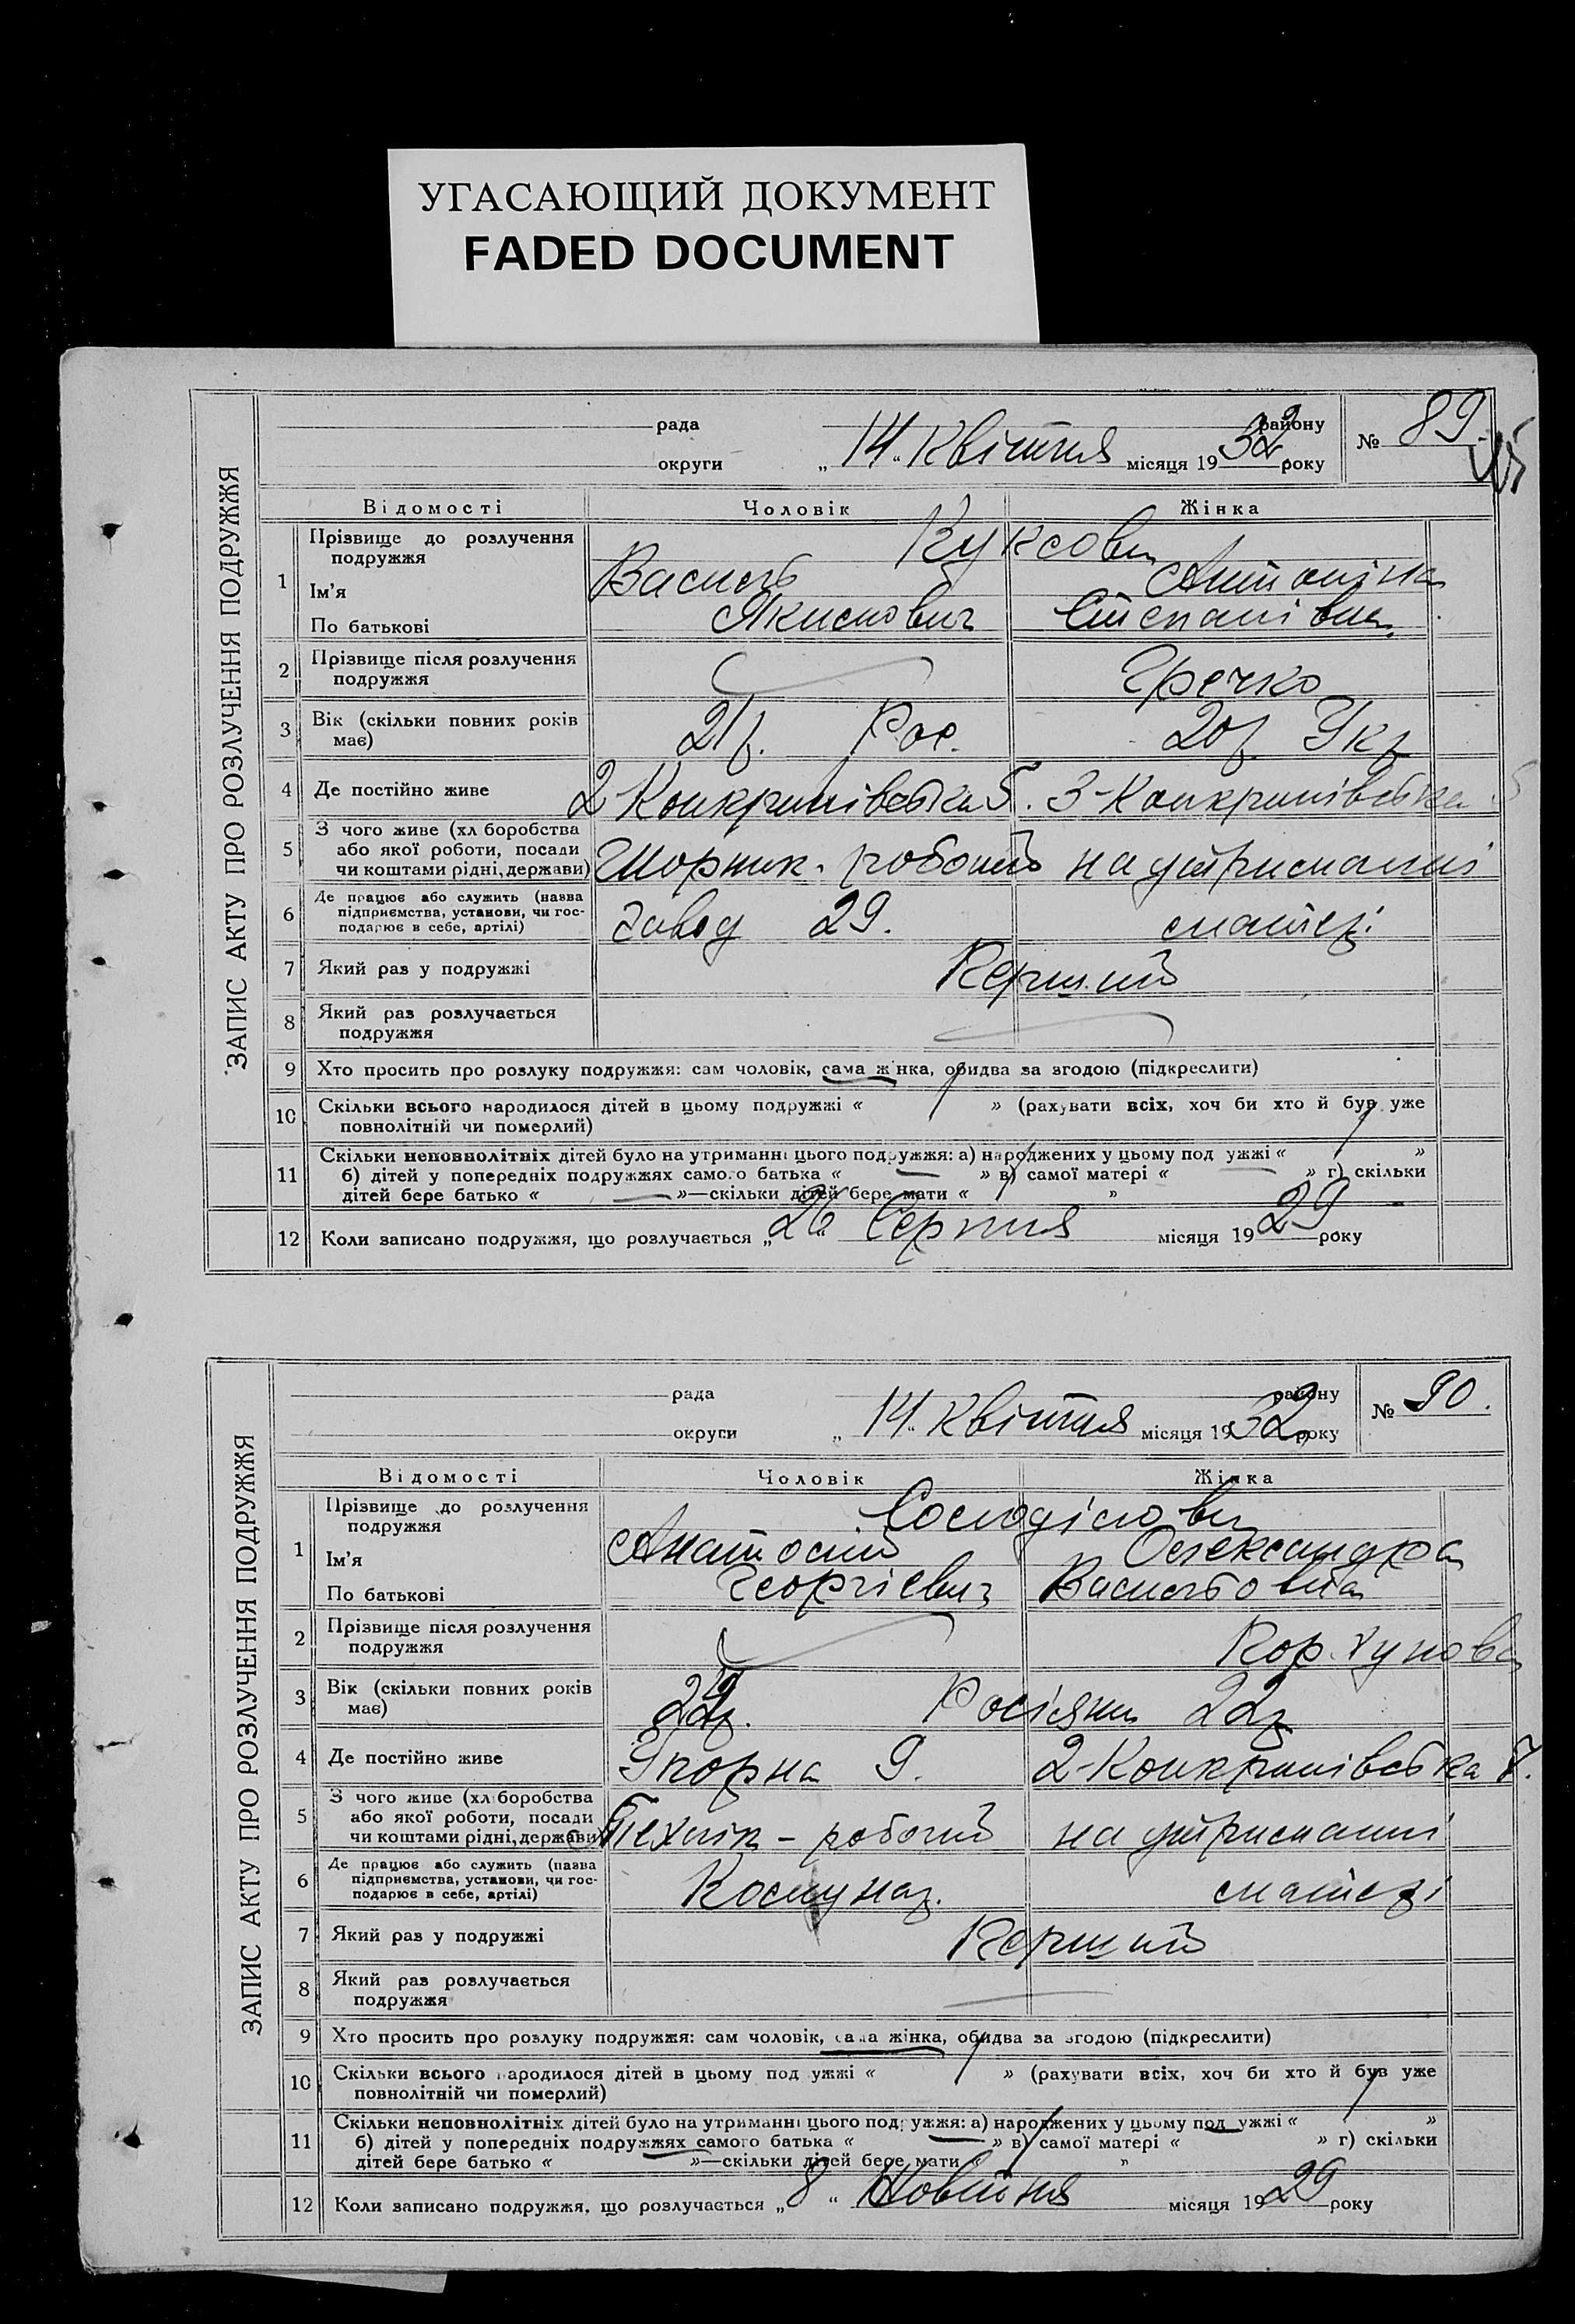 УГАСАЮЩИЙ ДОКУМЕНТ
FADED DOCUMENT
ЗАПИС АКТУ ПРО РОЗЛУЧЕННЯ ПОДРУЖЖЯ
рада району № 89.
округи „14“ Квітня місяця 1932 року
Відомості Чоловік Жінка
1 Прізвище до розлучення подружжя Куксови
Ім'я Василь Антоніна
По батькові Якимович Степанівна
2 Прізвище після розлучення подружжя Гречко
3 Вік (скільки повних років має) 21 р. Рос. 20 р. Укр
4 Де постійно живе 2-Конкринівська 5. 3-Конкринівська
5 З чого живе (хліборобства
або якої роботи, посади
чи коштами рідні, держави) Шорник. робочий на утриманні
6 Де працює або служить (назва
підприємства, установи, чи гос-
подарює в себе, артілі) Завод 29. матері
7 Який раз у подружжі Перший
8 Який раз розлучається
подружжя
9 Хто просить про розлуку подружжя: сам чоловік, сама жінка, обидва за згодою (підкреслити)
10 Скільки всього народилося дітей в цьому подружжі « » (рахувати всіх, хоч би хто й був уже
повнолітній чи померлий)
11 Скільки неповнолітніх дітей було на утриманні цього подружжя: а) народжених у цьому подружжі « »
б) дітей у попередніх подружжях самого батька « — » в) самої матері « » г) скільки
дітей бере батько « — »—скільки дітей бере мати « »
12 Коли записано подружжя, що розлучається „26“ Серпня місяця 1929 року
ЗАПИС АКТУ ПРО РОЗЛУЧЕННЯ ПОДРУЖЖЯ
рада району № 90.
округи „14“ Квітня місяця 1932 року
Відомості Чоловік Жінка
1 Прізвище до розлучення подружжя
Ім'я Анатолій Олександра
По батькові Георгієвич Васильовна
2 Прізвище після розлучення подружжя
3 Вік (скільки повних років має) 22 р. Росіяни 22 р
4 Де постійно живе Упорна 9. 2-Конкринівська 7.
5 З чого живе (хліборобства
або якої роботи, посади
чи коштами рідні, держави) Технік - робочий на утриманні
6 Де працює або служить (назва
підприємства, установи, чи гос-
подарює в себе, артілі) Комунар. матері
7 Який раз у подружжі Перший
8 Який раз розлучається
подружжя
9 Хто просить про розлуку подружжя: сам чоловік, сама жінка, обидва за згодою (підкреслити)
10 Скільки всього народилося дітей в цьому подружжі « » (рахувати всіх, хоч би хто й був уже
повнолітній чи померлий)
11 Скільки неповнолітніх дітей було на утриманні цього подружжя: а) народжених у цьому подружжі « »
б) дітей у попередніх подружжях самого батька « — » в) самої матері « » г) скільки
дітей бере батько « »—скільки дітей бере мати « »
12 Коли записано подружжя, що розлучається „8“ Жовтня місяця 1929 року